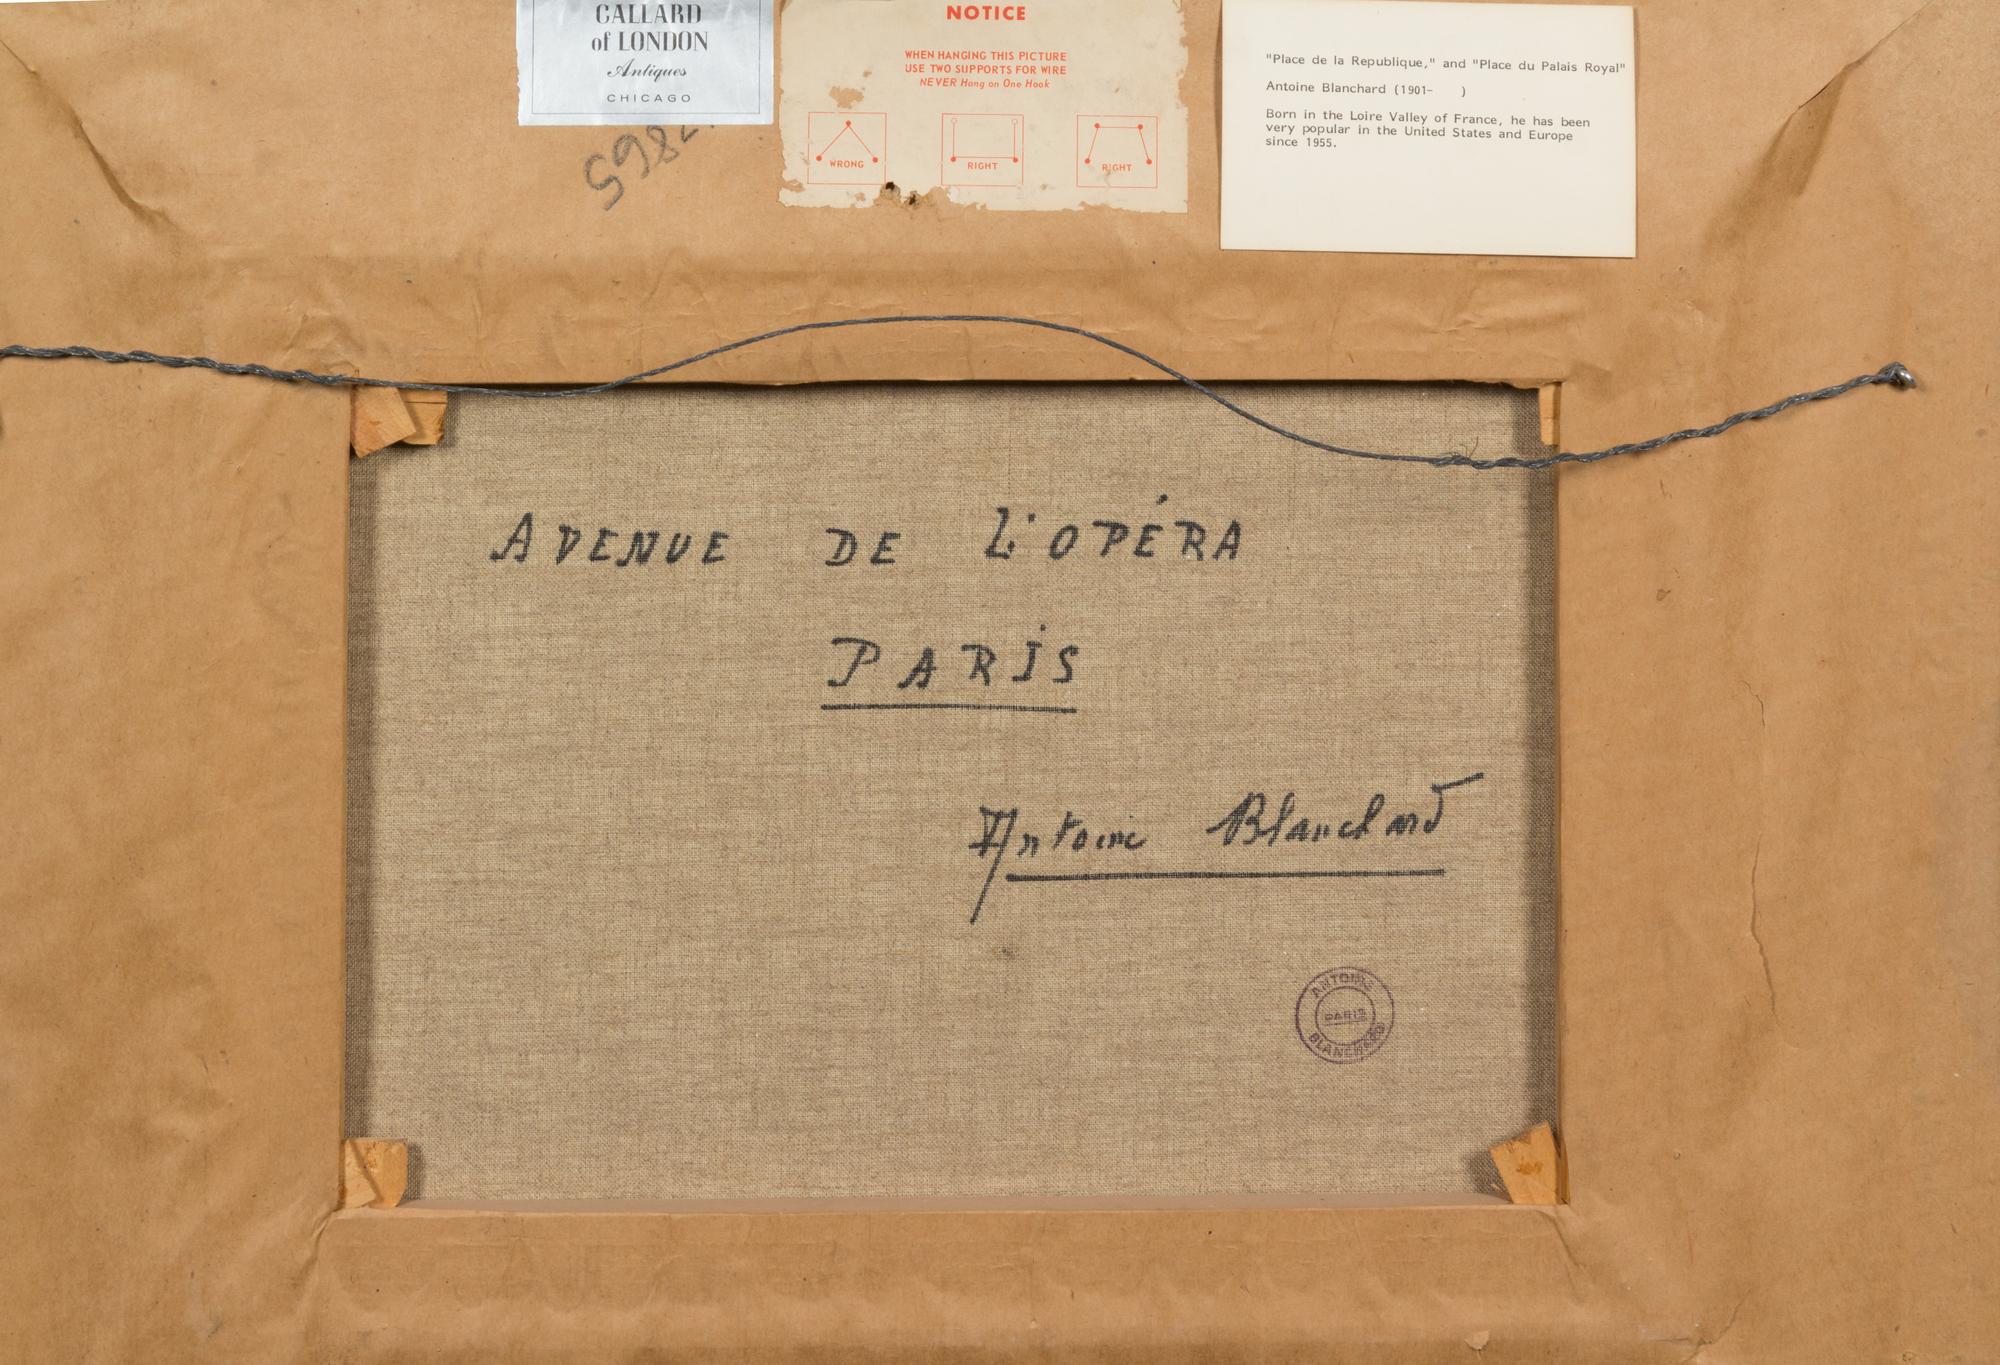 GALLARD
of LONDON
Antiques
CHICAGO
NOTICE
WHEN HANGING THIS PICTURE
USE TWO SUPPORTS FOR WIRE
NEVER Hang on One Hook
WRONG
RIGHT
RIGHT
"Place de la Republique," and "Place du Palais Royal"
Antoine Blanchard (1901-    )
Born in the Loire Valley of France, he has been
very popular in the United States and Europe
since 1955.
AVENUE DE L'OPÉRA
PARIS
Antoine Blanchard
ANTOINE
PARIS
BLANCHARD